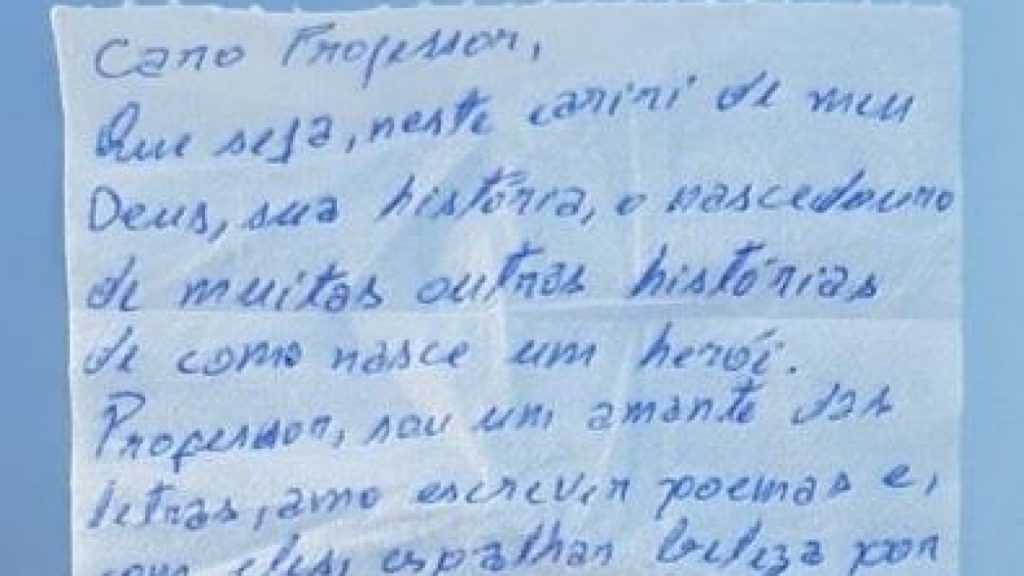 Caro Professor,
Que seja, neste cariri de meu
Deus, sua história, o nascedouro
de muitas outras histórias
de como nasce um herói.
Professor, sou um amante das
letras, amo escrever poemas e,
com eles, espalhar beleza por